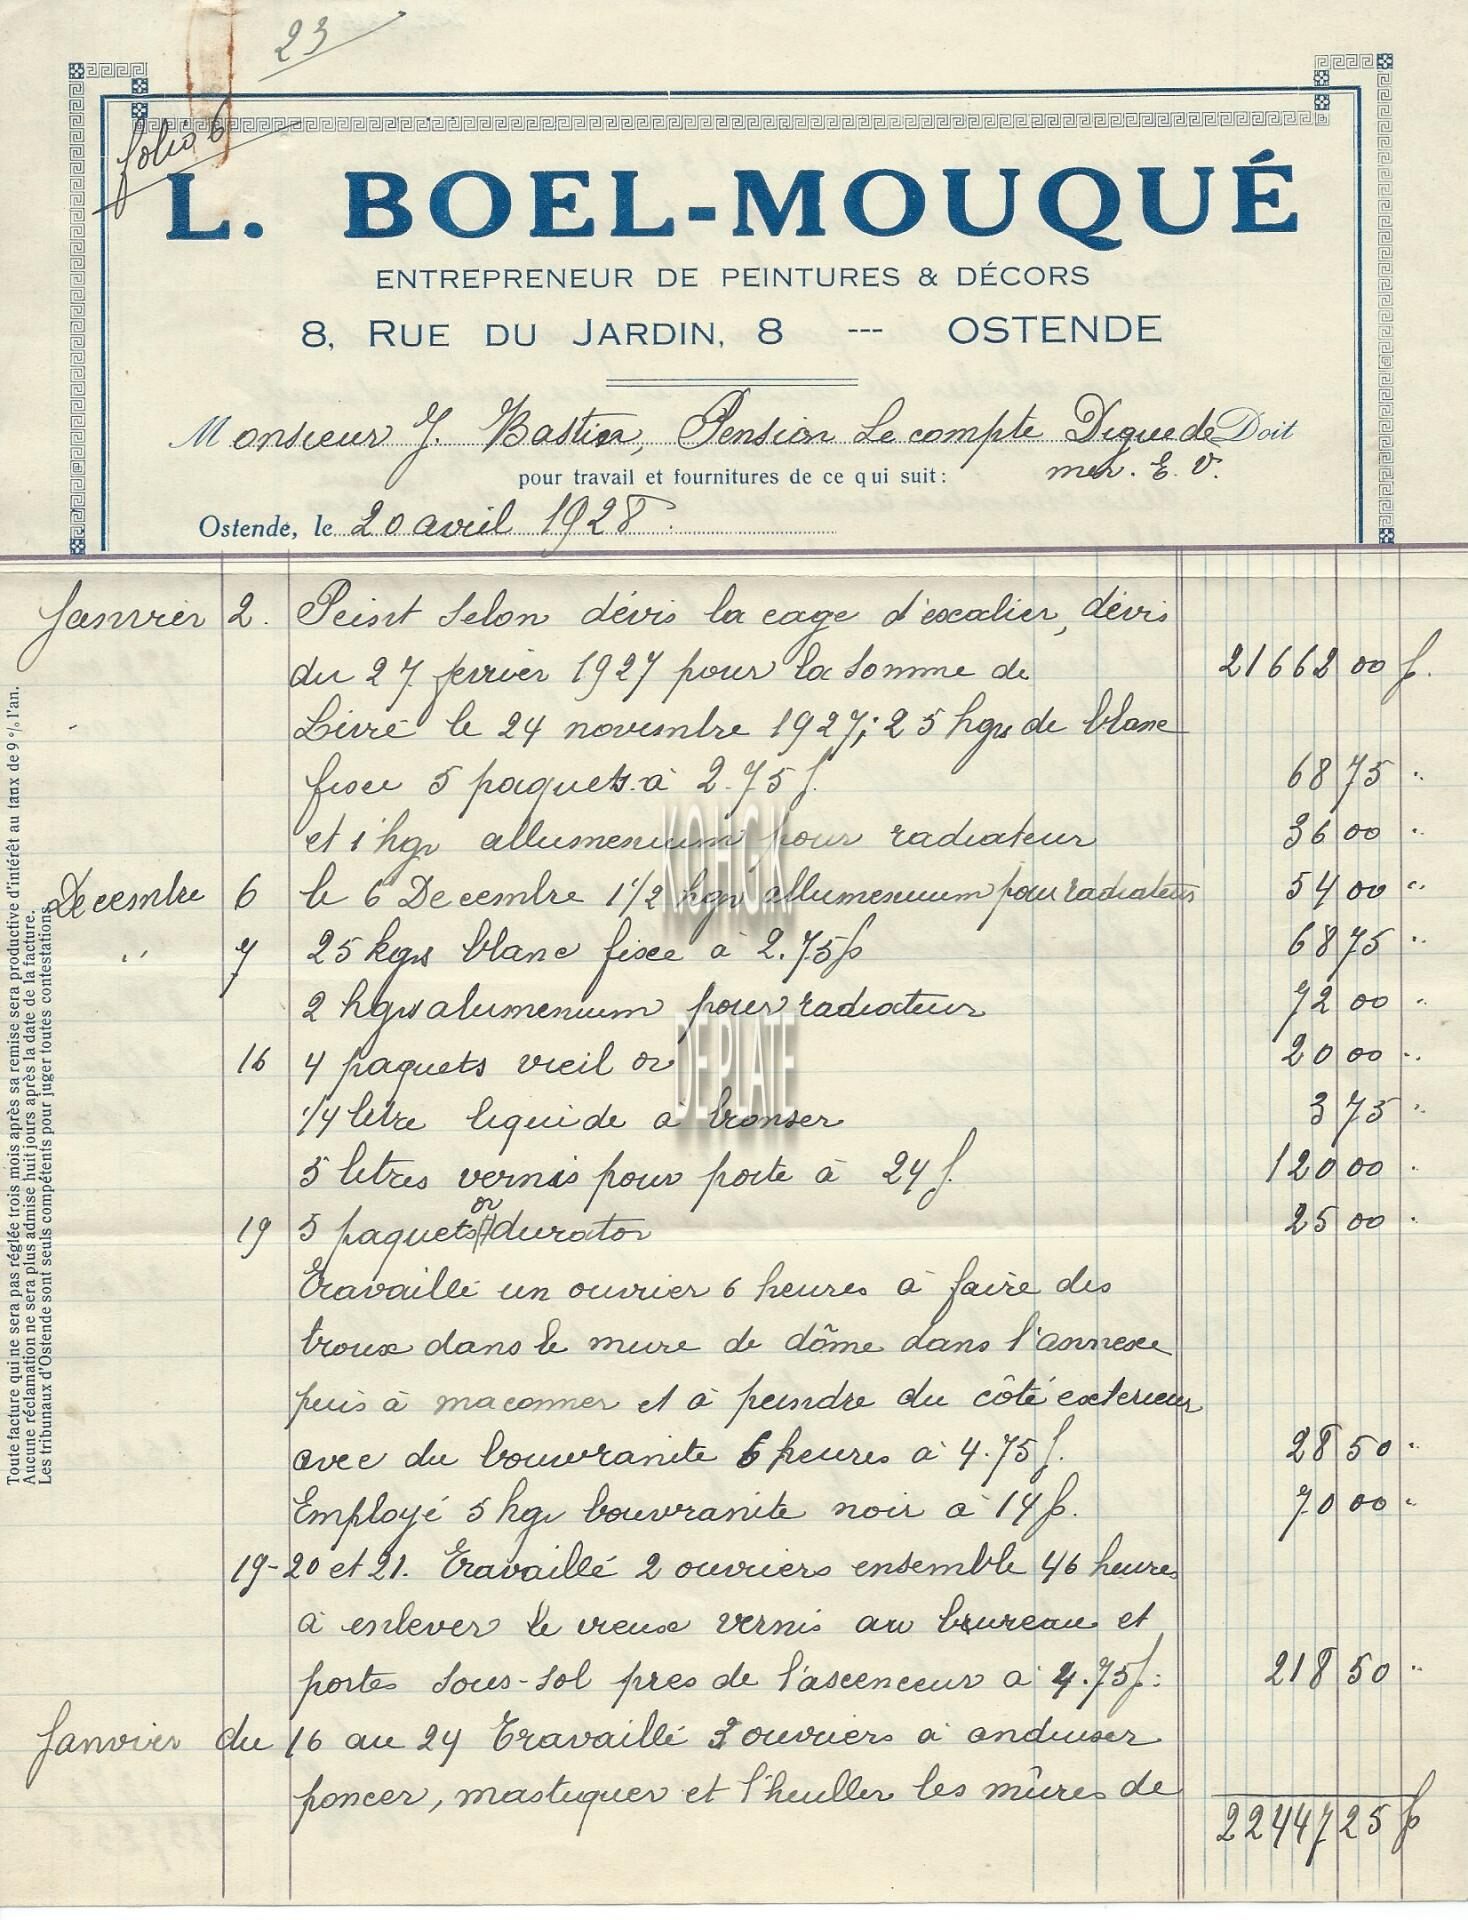 23
folio 6
L. BOEL-MOUQUÉ
ENTREPRENEUR DE PEINTURES & DÉCORS
8, RUE DU JARDIN, 8 --- OSTENDE
Monsieur J. Bastin, Pension Le compte Digue de Doit
mer. E. V.
pour travail et fournitures de ce qui suit:
Ostende, le 20 avril 1928.
Janvier 2. Peint selon dévis la cage d'escalier, dévis
du 27 fevrier 1927 pour la somme de 21662 00 f.
Livré le 24 novembre 1927; 25 kgs de blanc
fixee 5 paquets à 2.75 f. 68 75 "
et 1 kgr allumenium pour radiateur 36 00 "
Decembre 6 le 6 Decembre 1 1/2 kgr allumenuum pour radiateurs 54 00 "
" 7 25 kgs blanc fixee à 2.75 fr 68 75 "
2 kgrs alumenium pour radiateur 72 00 "
16 4 paquets vieil or 20 00 "
1/4 litre liquide a bronser 3 75 "
5 litres vernis pour porte à 24 f. 120 00 "
or
19 5 paquets durator 25 00 "
Travaillé un ouvrier 6 heures à faire des
troux dans le mure de dôme dans l'annexe
puis à maconner et à peindre du côté exterieur
avec du bouvranite 6 heures à 4.75 f. 28 50 "
Employé 5 kgr bouvranite noir à 14 fr. 70 00 "
19-20 et 21. Travaillé 2 ouvriers ensemble 46 heures
à enlever le vieux vernis au bureau et
portes sous-sol pres de l'ascenceur a 4.75 f: 218 50 "
Janvier du 16 au 24 Travaillé 2 ouvriers à anduiser
poncer, mastiquer et l'heuller les mûres de
22447 25 fr
Toute facture qui ne sera pas réglée trois mois après sa remise sera productive d'intérêt au taux de 9 % l'an.
Aucune réclamation ne sera plus admise huit jours après la date de la facture.
Les tribunaux d'Ostende sont seuls compétents pour juger toutes contestations.
KOHGK
DE PLATE